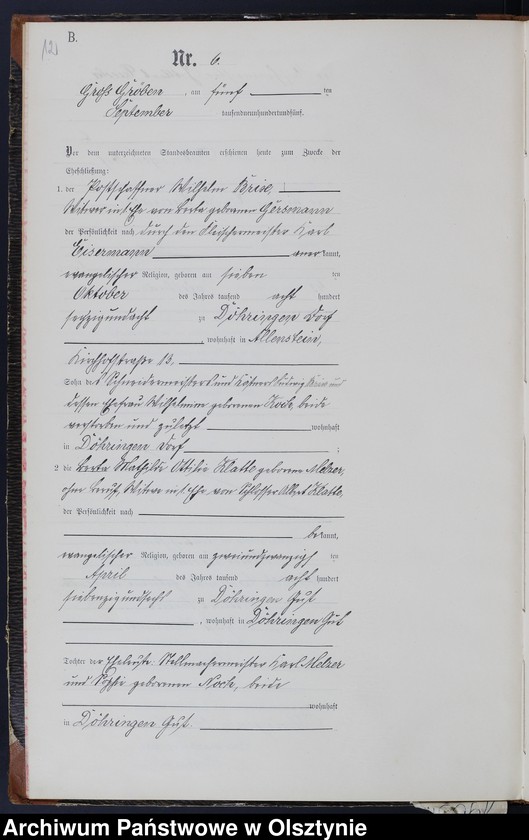 B.
121
Nr. 6.
Groß Gröben, am fünf ten
September tausendneunhundertundfünf.
Vor dem unterzeichneten Standesbeamten erschienen heute zum Zwecke der
Eheschließung:
1. der Postschaffner Wilhelm
Witwer in Ehe von Berta geborenen
der Persönlichkeit nach durch den Fleischermeister Karl
Eisermann anerkannt,
evangelischer Religion, geboren am sieben ten
Oktober des Jahres tausend acht hundert
sechzigundacht zu Döhringen Dorf
, wohnhaft in Allenstein,
Kirchhofstraße 13,
Sohn des Schneidermeisters und Ludwig und
dessen Ehefrau Wilhelmine geborenen beide
verstorben und zuletzt wohnhaft
in Döhringen Dorf ;
2 die Berta Mathilde Ottilie Klatt geborene
ohne Beruf, Witwe in Ehe von Schlosser Albert Klatt,
der Persönlichkeit nach
bekannt,
evangelischer Religion, geboren am zweiundzwanzigs ten
April des Jahres tausend acht hundert
siebenzigund zu Döhringen Gut
, wohnhaft in Döhringen Gut
Tochter der Eheleute Stellmachermeister Karl
und Sophie geborenen beide
wohnhaft
in Döhringen Gut.
Archiwum Państwowe w Olsztynie